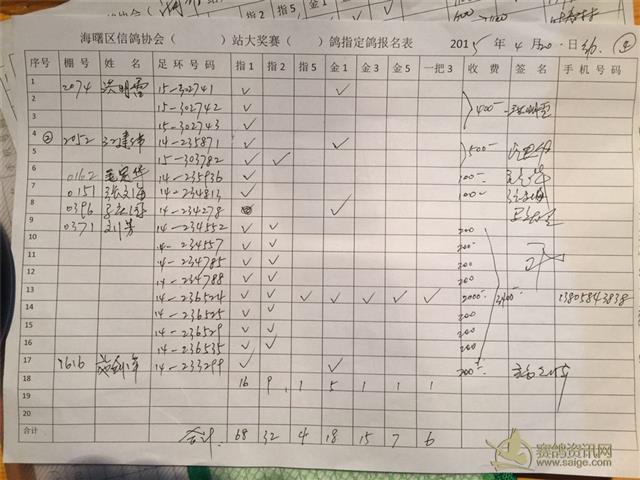 海曙区信鸽协会（ ）站大奖赛（ ）鸽指定鸽报名表 2015年4月20日
序号 棚号 姓名 足环号码 指1 指2 指5 金1 金3 金5 一把3 收费 签名 手机号码
1 2074 洪明雷 15-302741 ✓ ✓
2 15-302742 ✓ 400-
3 15-302743 ✓
4 ② 2052 14-235871 ✓ ✓
5 15-303782 ✓ ✓ 500-
6 0162 14-235936 ✓ 100-
7 0151 张文海 14-234813 ✓ 100-
8 0396 14-234278 ✓
9 0371 刘芳 14-234552 ✓ ✓ 200
10 14-234557 ✓ ✓ 200-
11 14-234785 ✓ ✓ 200
12 14-234788 ✓ ✓ 200
13 14-236524 ✓ ✓ ✓ ✓ ✓ ✓ ✓ 2000- 3400- 13805843838
14 14-236525 ✓ ✓ 200
15 14-236529 ✓ ✓ 200
16 14-236535 ✓ ✓ 200
17 1616 14-233299 ✓ ✓ 200-
18 16 9 1 5 1 1 1
19
20
合计 合计 68 32 4 18 15 7 6
赛鸽资讯网
www.saige.com